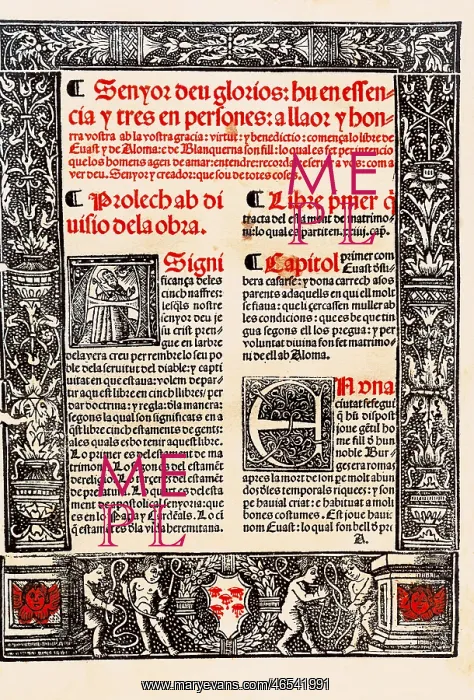 ¶ Senyor deu glorios: hu en essen-
cia y tres en persones: a llaor y hon-
rra vostra ab la vostra gracia: virtut: y benedictio: comença lo libre de
Euast y de Aloma: e de Blanquerna son fill: lo qual es fet per intencio
que los homens agen de amar: entendre: recordar e seruir a vos: com a
ver deu. Senyor y creador: que sou de totes coses.
¶ Prolech ab di
uisio dela obra.
Signi
ficança deles
cinch naffres:
lesqls nostre
senyor deu je
su crist pren-
gue en larbre
dela vera creu per rembre lo seu po
ble dela seruitut del diable: y capti
uitat en que estaua: volem depar-
tir aquest libre en cinch libres/ per
dar doctrina: y regla: dla manera:
segons la qual son significats en a
qst libre cinch estaments de gents:
als quals es bo tenir aquest libre.
Lo primer es del estament de ma
trimoni. Lo segon es del estament
de religio. Lo
de prelatura. Lo
ment de apostolical senyoria: que
es en lo Papa y Cardenals. Lo ci
q estament es dla vida heremitana.
¶ Libre pmer q
tracta del estament de matrimo-
ni: lo qual es partit en. xviij. cap.
¶ Capitol primer com
Euast dsli-
bera casarse: y dona carrech a sos
parents ada quells en qui ell molt
se fiaua: que li cercassen muller ab
les condicions: que es be que tin
gua segons ell los pregua: y per
voluntat diuina fon fet matrimo-
ni de ell ab Aloma.
En vna
ciutat se segui
q hu disposit
joue gētil ho
me fill d hun
noble Bur-
ges era romas
apres la mort de son pe molt abun
dos d les temporals riquees: y son
pe hauial criat: e habituat a molt
bones costumes. Est joue hauie
nom Euast: lo qual fon bell d pre
A.
MEPL
MEPL
www.maryevans.com/46541991